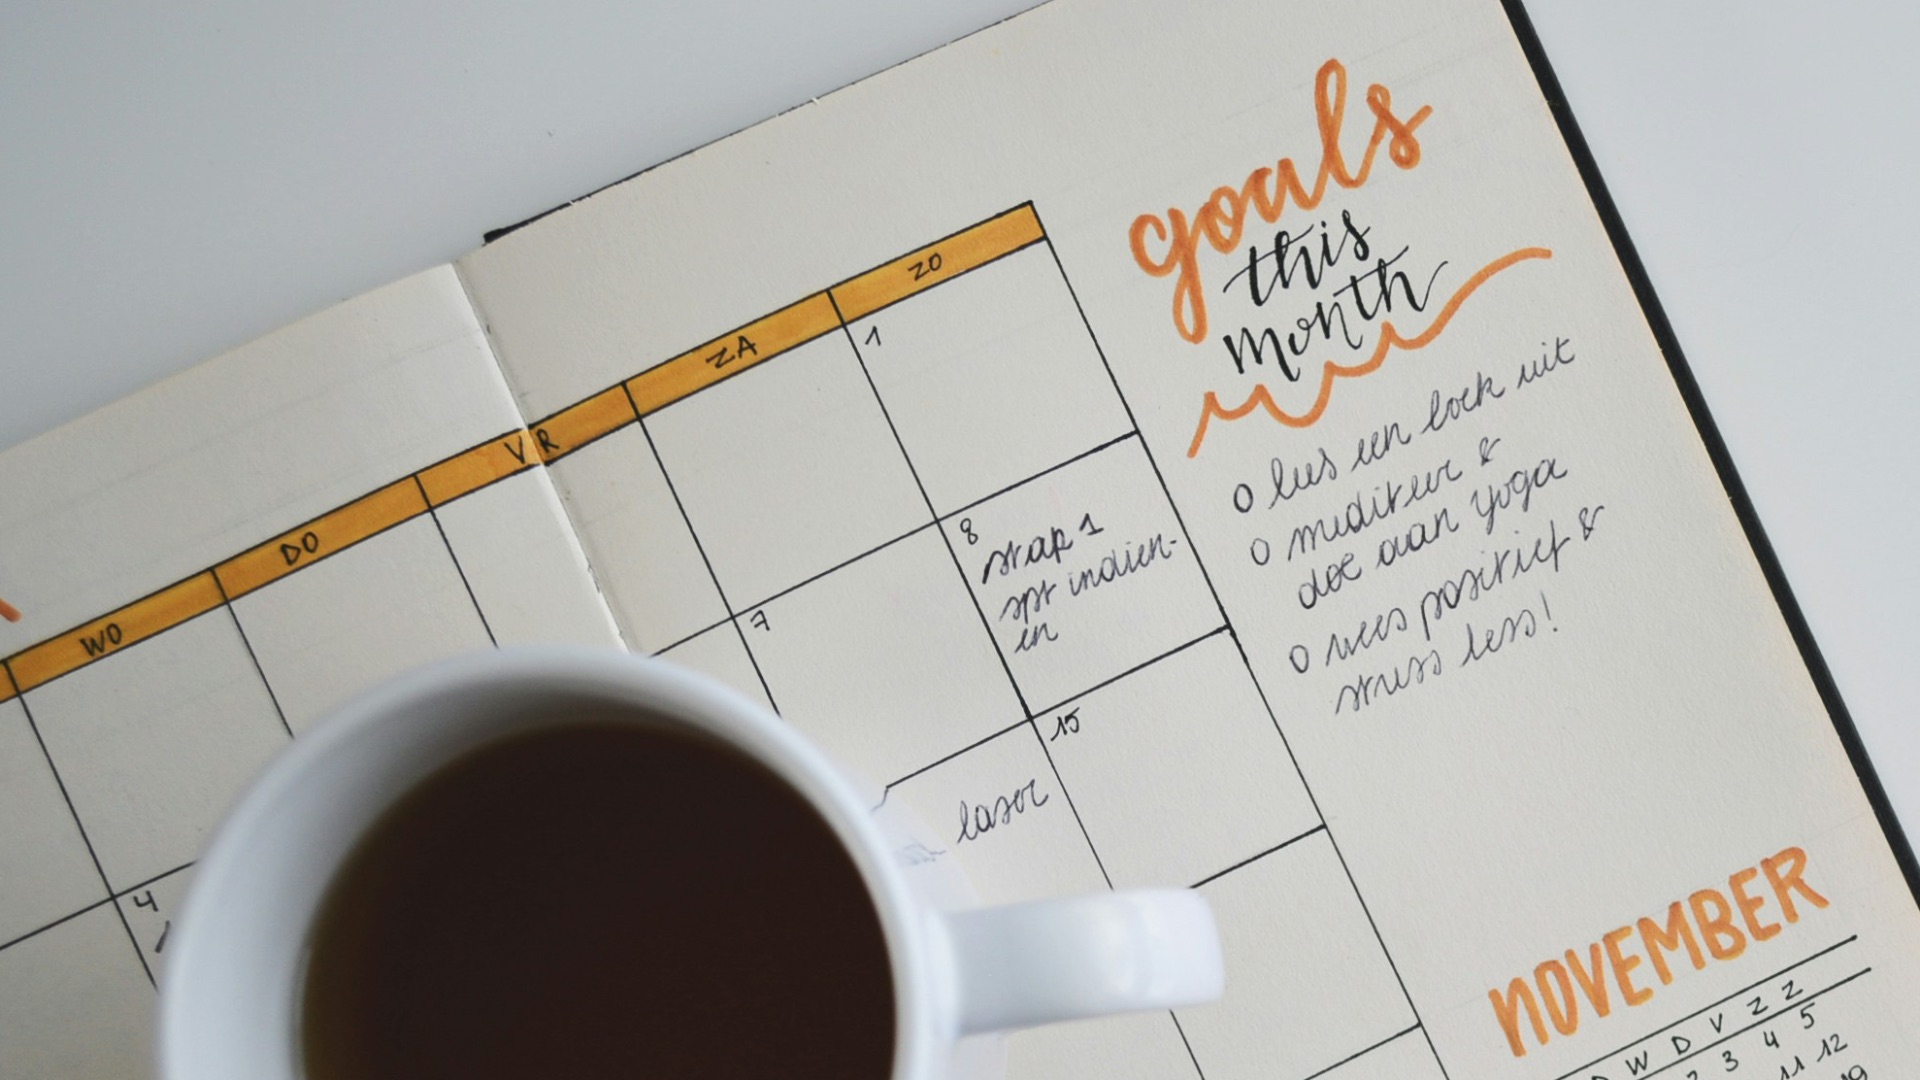 goals
this
month
WO DO VR ZA ZO
1
4
7
8
stap 1
spt indien-
en
15
laser
o lees een boek uit
o mediteer &
doe aan yoga
o wees positief &
stress less!
NOVEMBER
D W D V Z Z
2 3 4 5
11 12
19